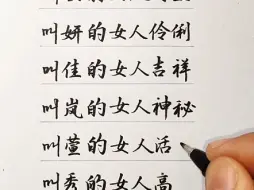 叫妍的女人伶俐
叫佳的女人吉祥
叫岚的女人神秘
叫萱的女人活
叫秀的女人高